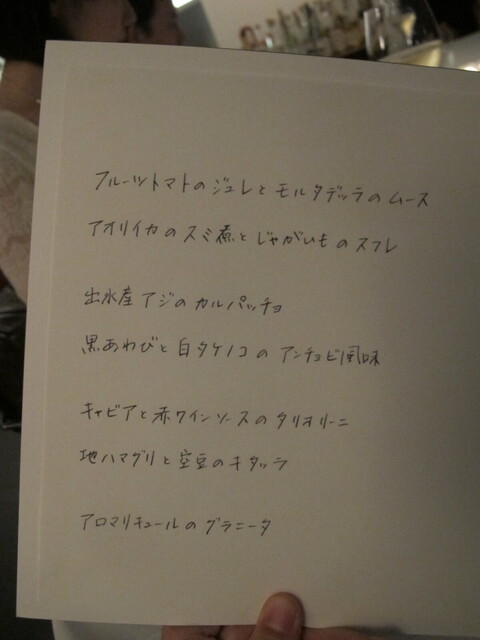 フルーツトマトのジュレとモルタデッラのムース
アオリイカのスミ煮とじゃがいものスフレ
出水産アジのカルパッチョ
黒あわびと白タケノコのアンチョビ風味
キャビアと赤ワインソースのタリオリーニ
地ハマグリと空豆のキタッラ
アロマリキュールのグラニータ